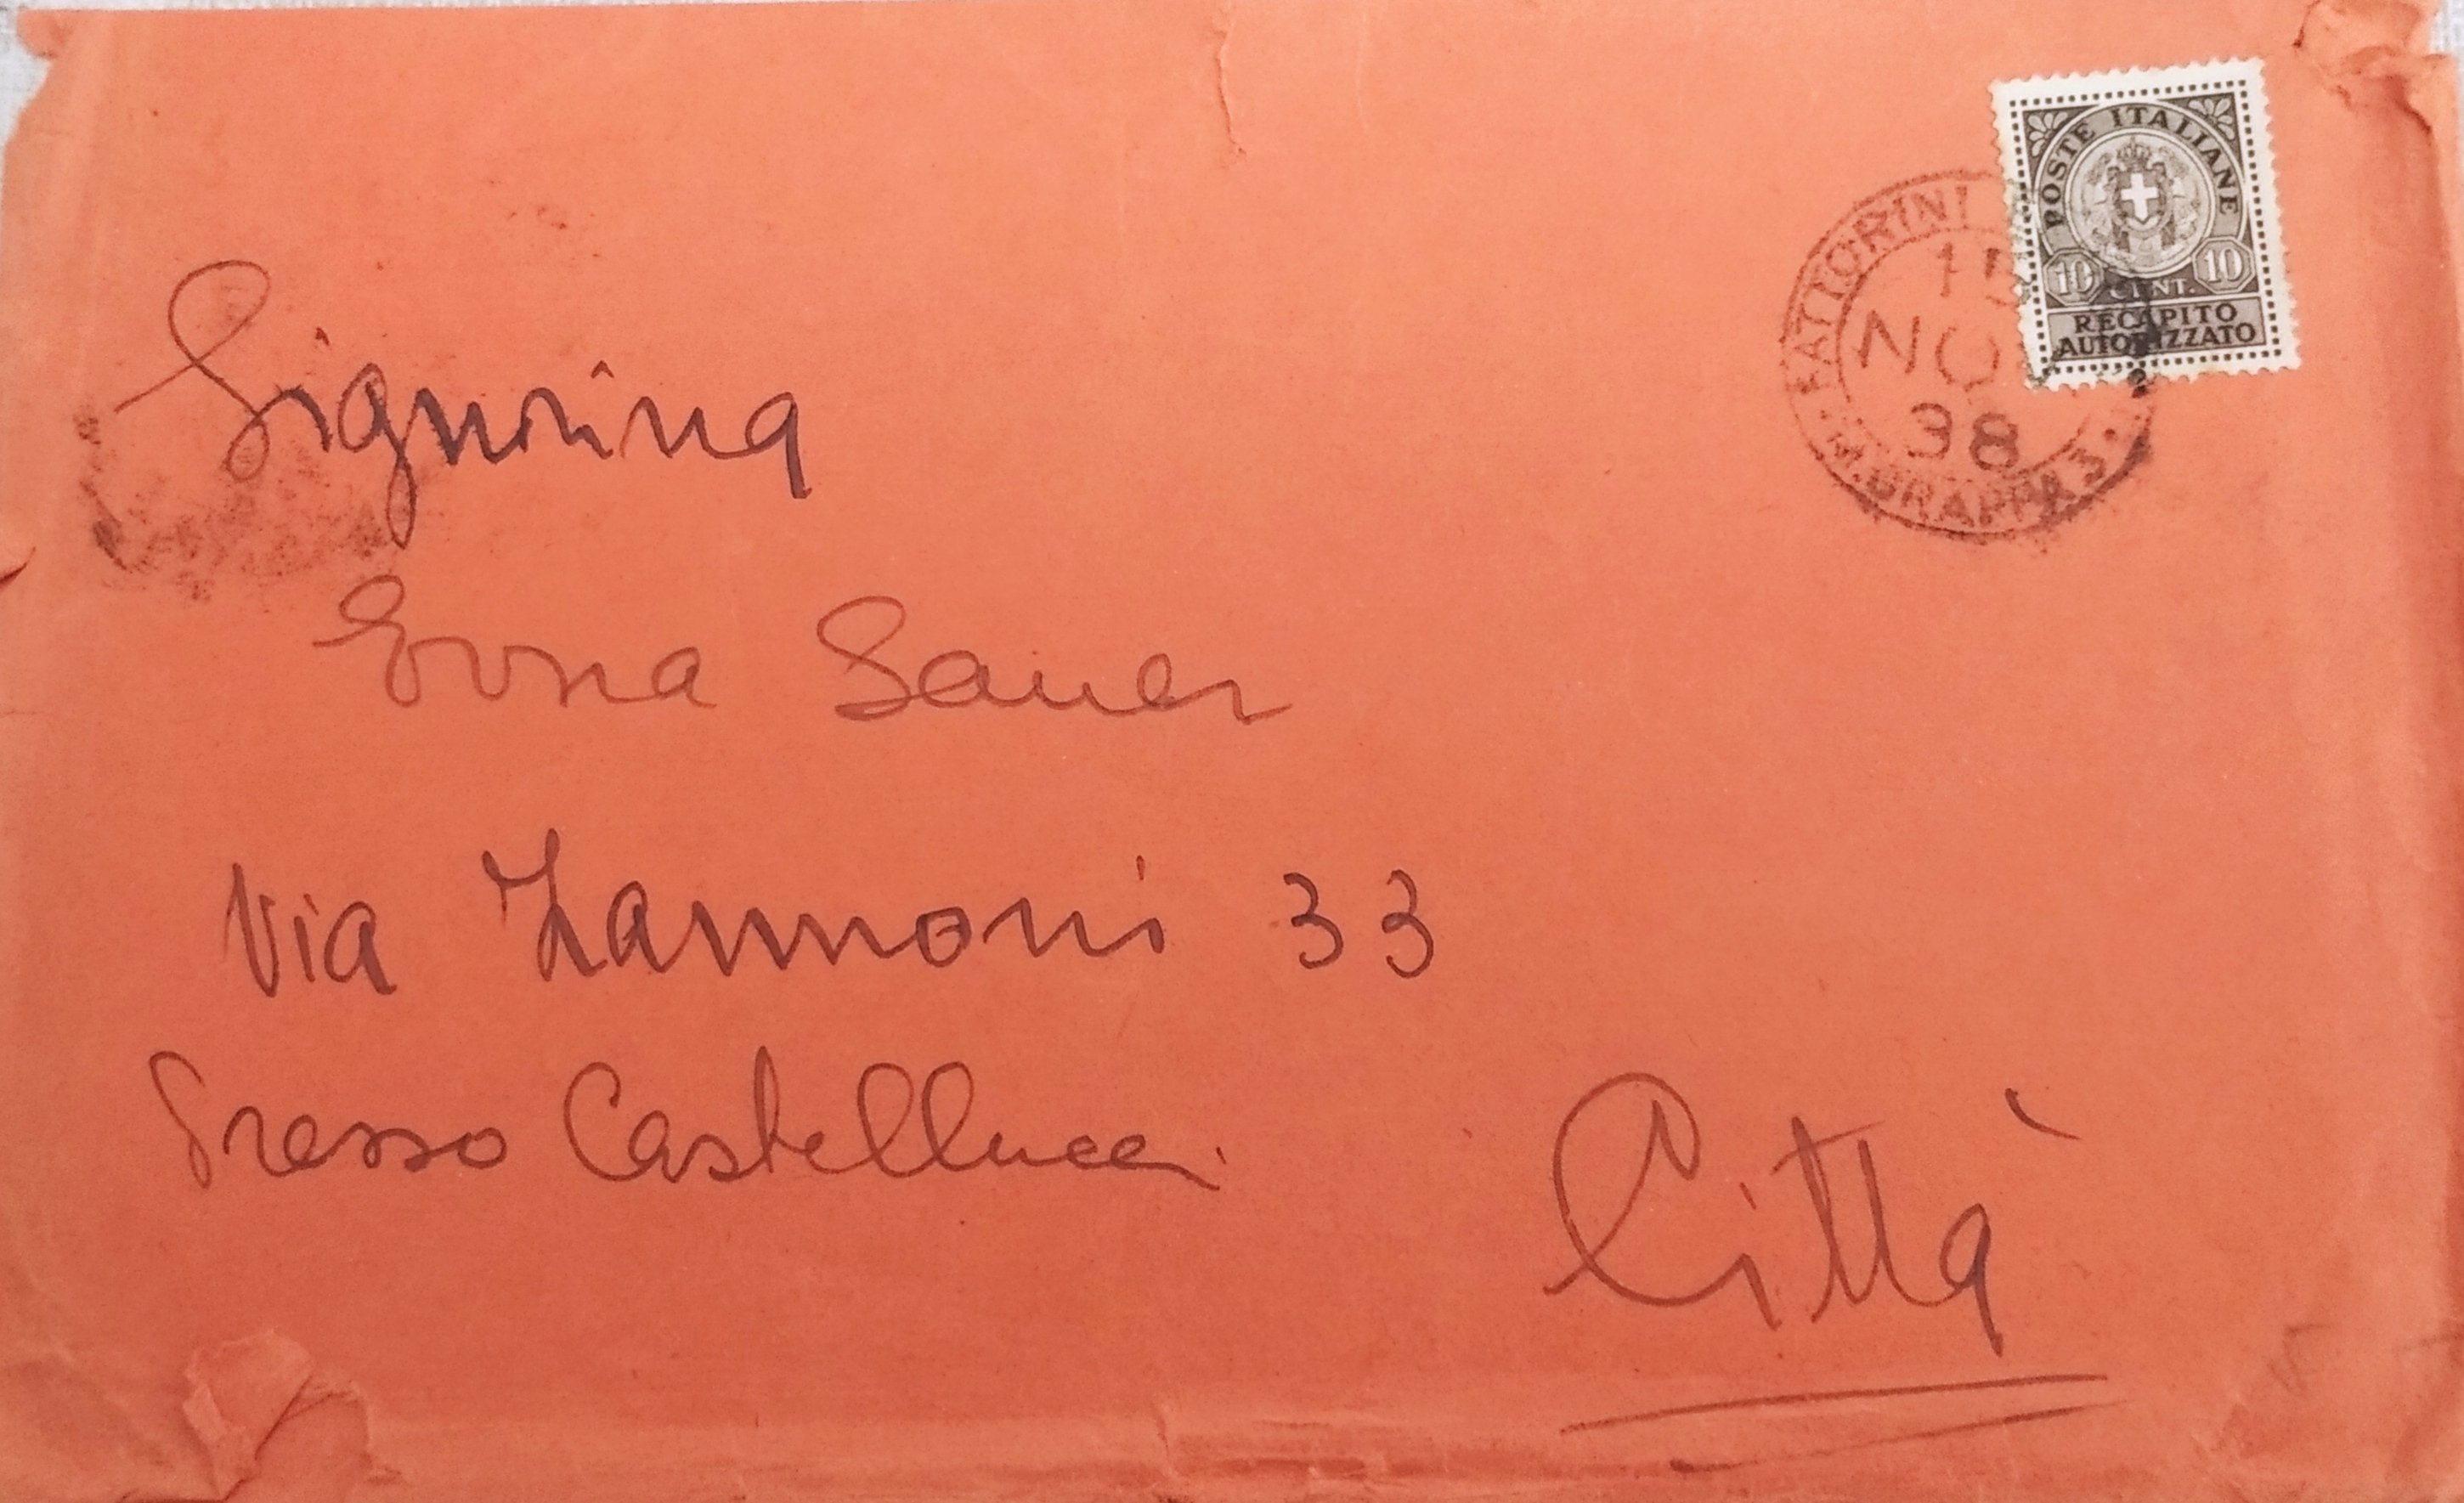 POSTE ITALIANE
10 CENT. 10
RECAPITO
AUTORIZZATO
FATTORINI
15
NO
38
M. GRAPPA 3
Signorina
Erna Sauer
Via Zannoni 33
Presso Castellucci
Città